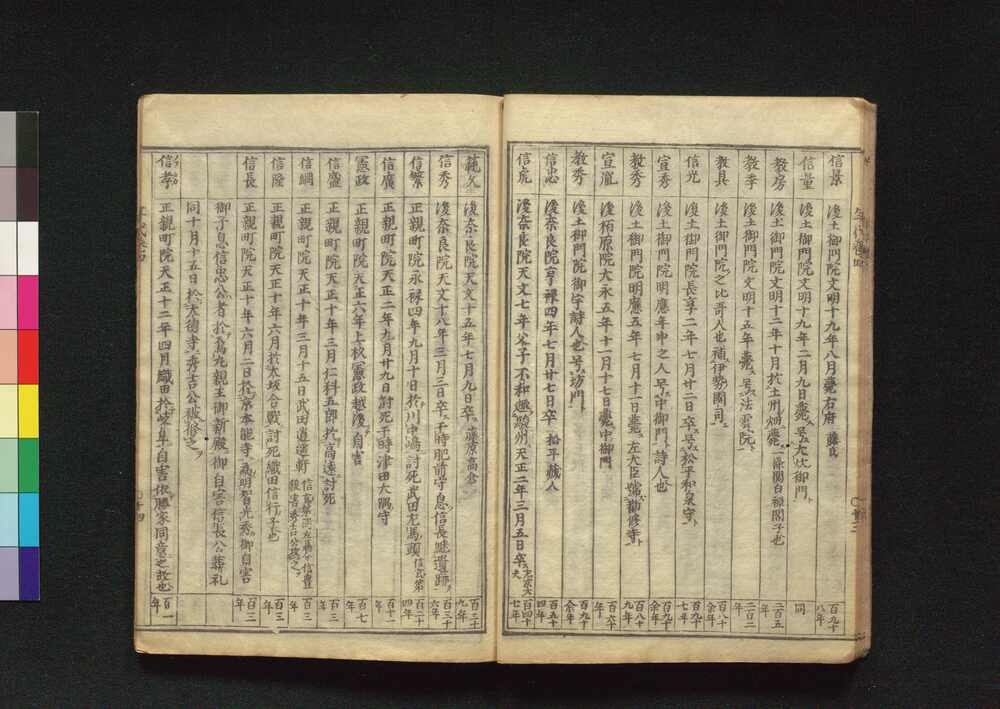 信景 後土御門院文明十九年八月薨右府 藤氏 百九十八年
信量 後土御門院文明十九年二月九日薨号大炊御門 同
教房 後土御門院文明十二年十月於土州畑薨一条関白禅閤子也 二百五年
教季 後土御門院文明十五年薨号法雲院 二百二年
教具 後土御門院之比哥人也補伊勢國司 百八十余年
信光 後土御門院長享二年七月廿二日卒号松平和泉守 百九十七年
宣秀 後土御門院明應年中之人号中御門詩人也 百九十余年
教秀 後土御門院明應五年七月十一日薨左大臣号勧修寺 百八十九年
宣胤 後柏原院大永五年十一月十七日薨中御門 百六十年
教秀 後土御門院御宇詩人也号坊門 百九十余年
信忠 後奈良院享禄四年七月廿七日卒 拾平蔵人 百五十四年
信虎 後奈良院天文七年父子不和趣駿州天正二年三月五日卒 百四十七年
範久 後奈良院天文十五年七月九日卒藤原高倉 百三十九年
信秀 後奈良院天文十八年三月三日卒于時肥前守息信長継遺跡 百三十六年
信繁 正親町院永禄四年九月十日於川中嶋討死武田左馬頭信玄弟 百二十四年
信廣 正親町院天正二年九月廿九日討死于時津田大隅守 百十一年
憲政 正親町院天正六年上杦憲政越後自害 百七年
信盛 正親町院天正十年三月仁科五郎於高遠討死 百三年
信綱 正親町院天正十年三月十五日武田逍遥軒 百三年
信隆 正親町院天正十年六月於大坂合戰討死織田信行子也 百三年
信長 正親町院天正十年六月二日於京本能寺為明智光秀御自害 百三年
御子息信忠公者於為九親王御新殿御自害信長公葬礼
同十月十五日於大徳寺秀吉公被修之
信孝 正親町院天正十二年四月織田於岐阜自害依勝家同意之故也 百一年